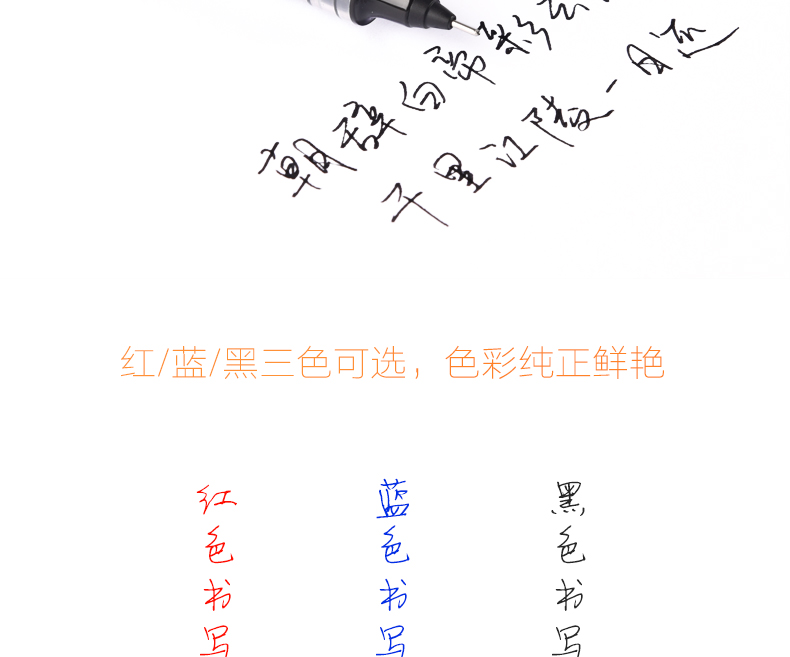 朝辞白帝彩云
千里江陵一日还
红/蓝/黑三色可选，色彩纯正鲜艳
红色书写
蓝色书写
黑色书写